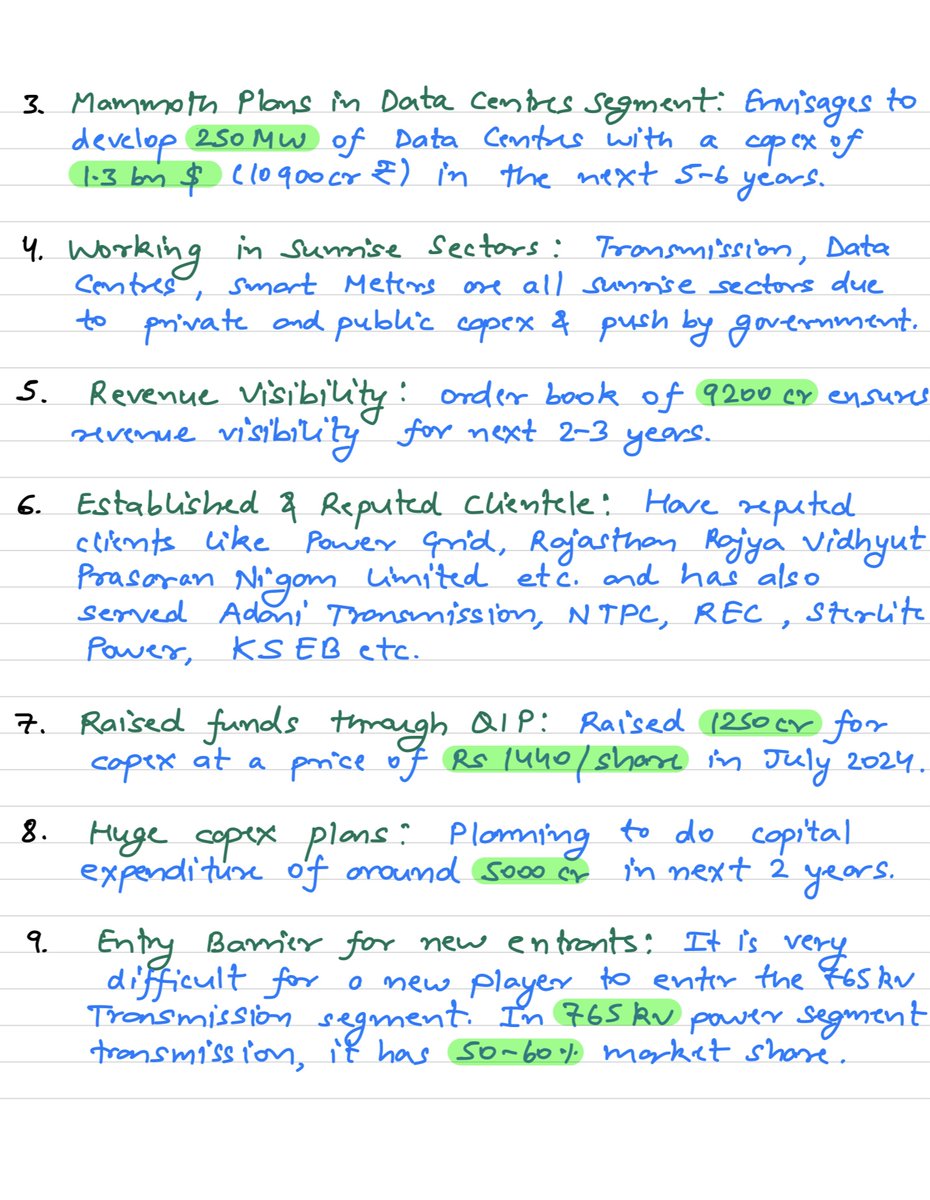 3. Mammoth Plans in Data Centres Segment: Envisages to
develop 250 MW of Data Centres with a capex of
1.3 bn $ (10900cr ₹) in the next 5-6 years.
4. Working in Sunrise Sectors: Transmission, Data
Centres, Smart Meters are all sunrise sectors due
to private and public capex & push by government.
5. Revenue Visibility: order book of 9200 cr ensures
revenue visibility for next 2-3 years.
6. Established & Reputed Clientele: Have reputed
clients like Power Grid, Rajasthan Rajya Vidhyut
Prasaran Nigam Limited etc. and has also
served Adani Transmission, NTPC, REC, Sterlite
Power, KSEB etc.
7. Raised funds through QIP: Raised 1250cr for
capex at a price of Rs 1440/share in July 2024.
8. Huge capex plans: Planning to do capital
expenditure of around 5000 cr in next 2 years.
9. Entry Barrier for new entrants: It is very
difficult for a new player to enter the 765kv
Transmission segment. In 765kv power segment
transmission, it has 50-60% market share.